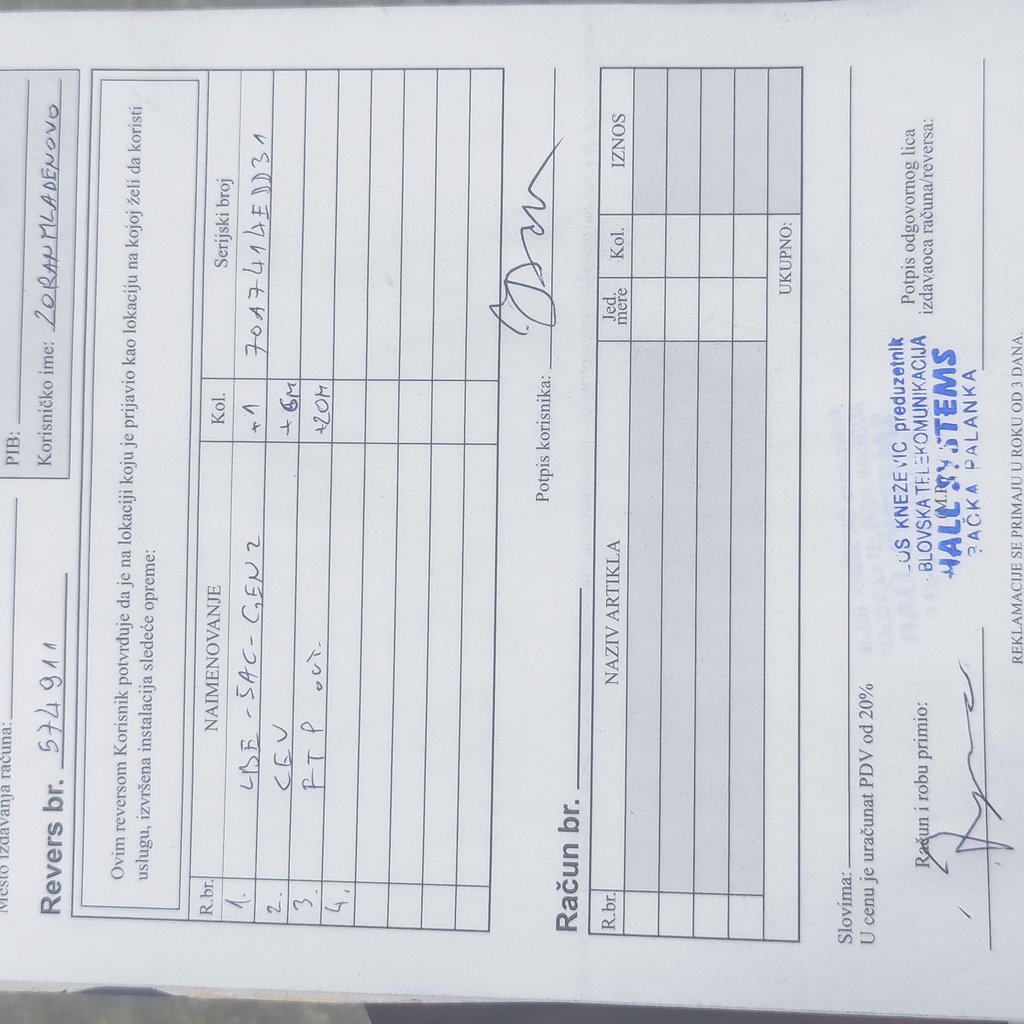 Mesto izdavanja računa:
PIB:
Korisničko ime: ZORANMLADENOVO
Revers br. 574911
Ovim reversom Korisnik potvrđuje da je na lokaciji koju je prijavio kao lokaciju na kojoj želi da koristi
uslugu, izvršena instalacija sledeće opreme:
R.br. NAIMENOVANJE Kol. Serijski broj
1. LBE-5AC-GEN2 +1 70174141EDD31
2. CEV +6M
3. FTP out. +20M
4.
Potpis korisnika:
Račun br.
R.br. NAZIV ARTIKLA Jed. mere Kol. IZNOS
UKUPNO:
Slovima:
U cenu je uračunat PDV od 20%
Račun i robu primio:
(M.P.)
Potpis odgovornog lica
izdavaoca računa/reversa:
OŠ KNEŽEVIĆ preduzetnik
BLOVSKA TELEKOMUNIKACIJA
HALL SYSTEMS
BAČKA PALANKA
REKLAMACIJE SE PRIMAJU U ROKU OD 3 DANA.